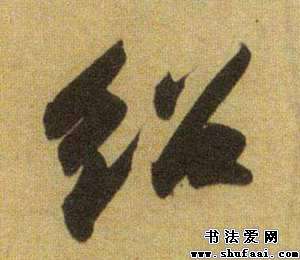 紹
书法爱网
www.shufaai.com